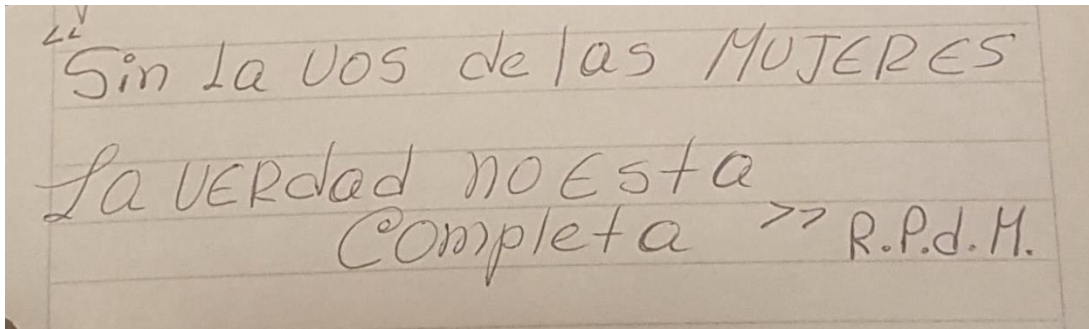 “Sin La Vos de las MUJERES
La VERdad no Esta
Completa >> R.P.d.M.